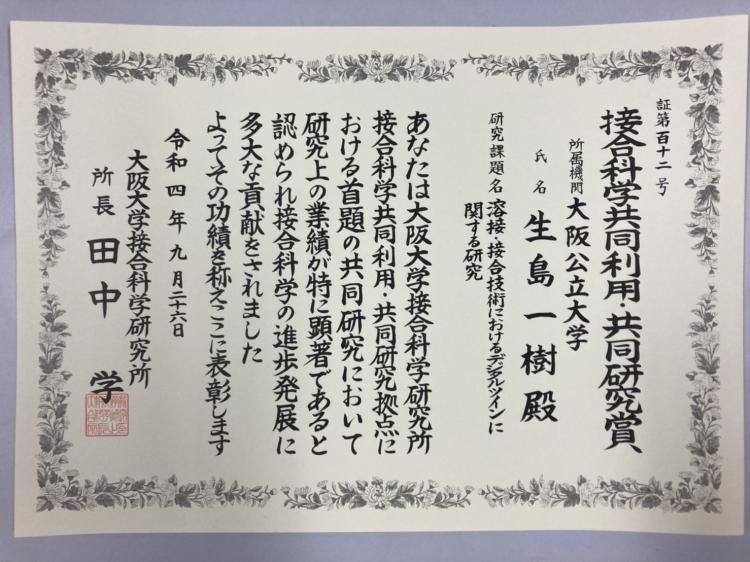 証第百十二号
接合科学共同利用・共同研究賞
所属機関 大阪公立大学
氏名 生島一樹殿
研究課題名 溶接・接合技術におけるデジタルツインに
関する研究
あなたは大阪大学接合科学研究所
接合科学共同利用・共同研究拠点に
おける首題の共同研究において
研究上の業績が特に顕著であると
認められ接合科学の進歩発展に
多大な貢献をされました
よってその功績を称えここに表彰します
令和四年九月二十六日
大阪大学接合科学研究所
所長 田中学